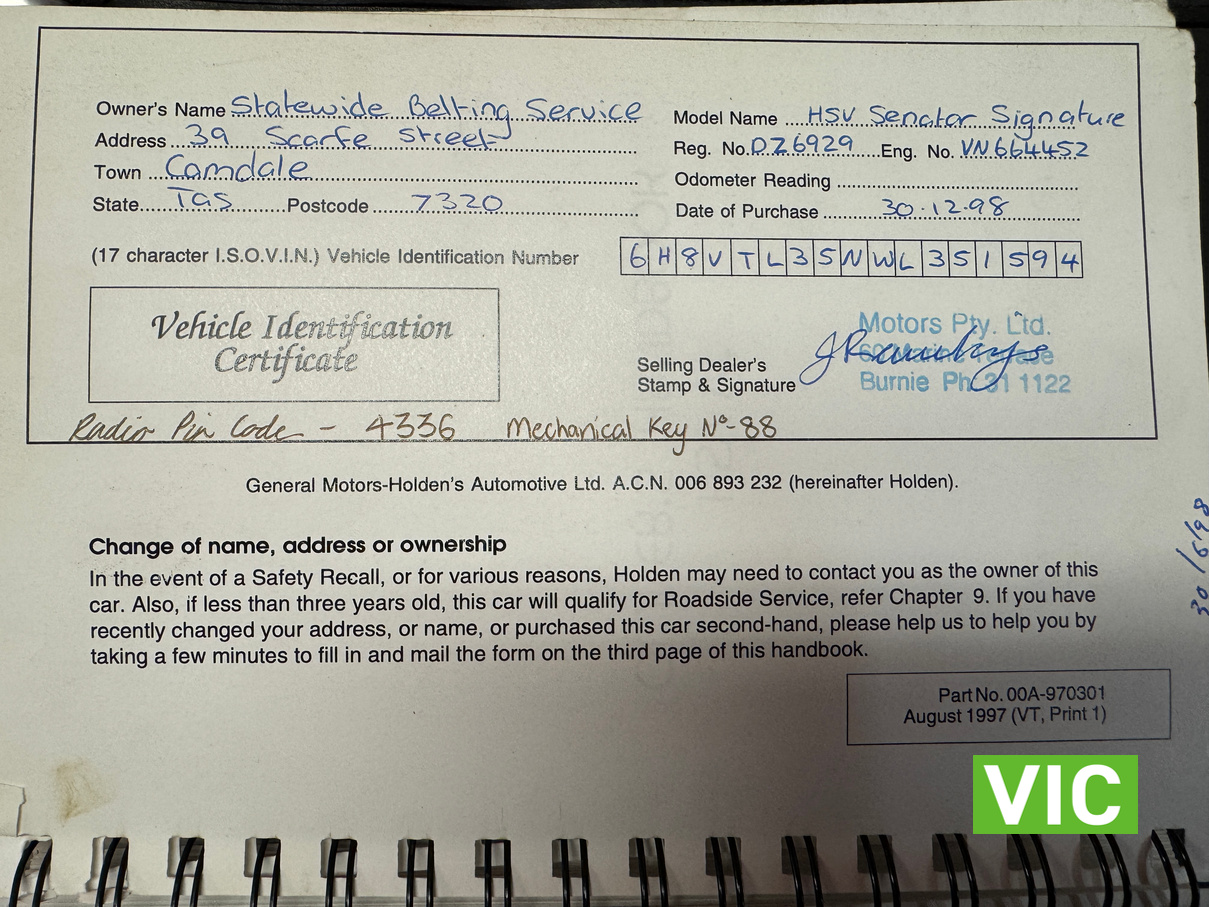 Owner's Name Statewide Belting Service
Address 39 Scarfe Street
Town Camdale
State Tas Postcode 7320
Model Name HSV Senator Signature
Reg. No. DZ6929 Eng. No. VN664452
Odometer Reading
Date of Purchase 30.12.98
(17 character I.S.O.V.I.N.) Vehicle Identification Number 6H8VTL35NWL351594
Vehicle Identification
Certificate
Selling Dealer's
Stamp & Signature
Motors Pty. Ltd.
Burnie Ph 31 1122
Radio Pin Code - 4336 Mechanical Key No-88
General Motors-Holden's Automotive Ltd. A.C.N. 006 893 232 (hereinafter Holden).
Change of name, address or ownership
In the event of a Safety Recall, or for various reasons, Holden may need to contact you as the owner of this
car. Also, if less than three years old, this car will qualify for Roadside Service, refer Chapter 9. If you have
recently changed your address, or name, or purchased this car second-hand, please help us to help you by
taking a few minutes to fill in and mail the form on the third page of this handbook.
Part No. 00A-970301
August 1997 (VT, Print 1)
30/6/98
VIC